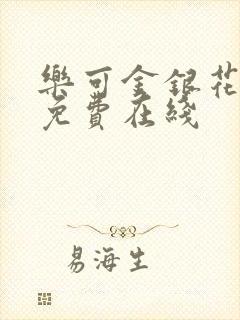 樂可金銀花
免費在綫
易海生